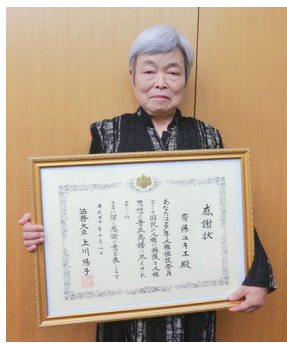 感謝状
齊藤ユキエ殿
あなたは多年人権擁護委員
として国民の人権の擁護と人権
思想の普及高揚に尽くされ
ました
よって深く感謝の意を表します
法務大臣 上川陽子